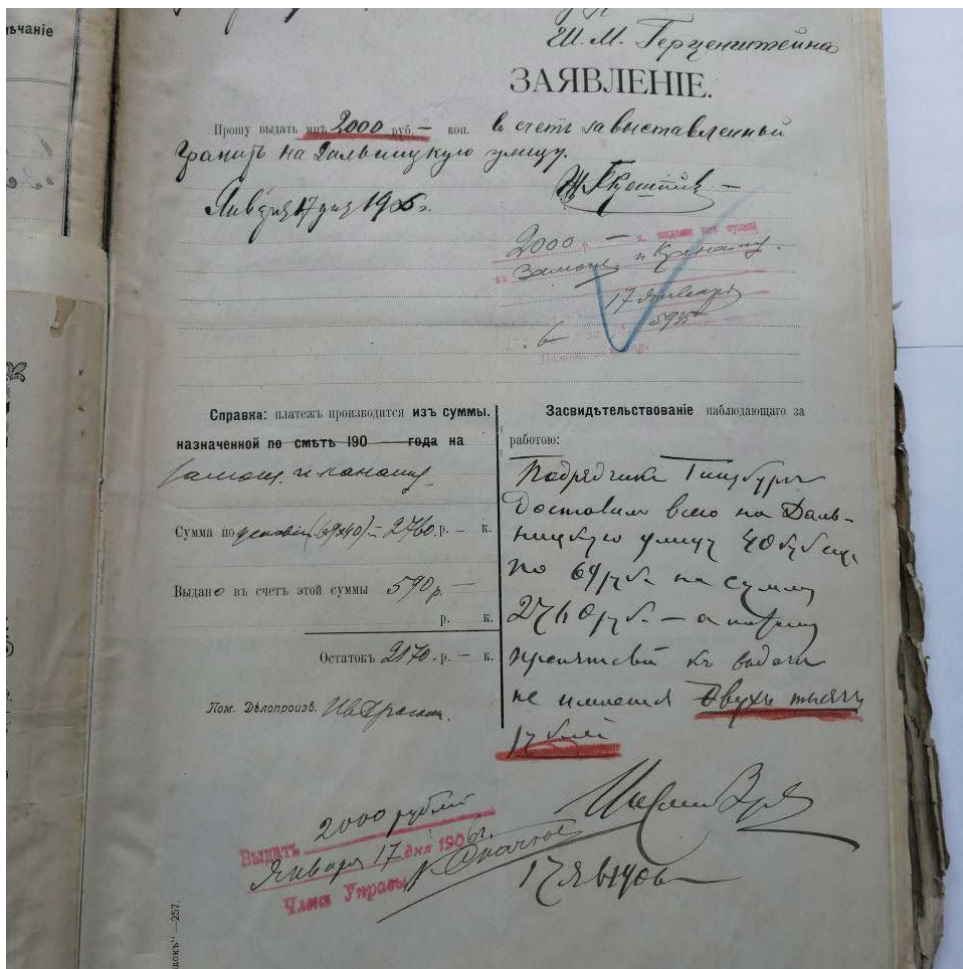 ѣчаніе
Ш. М. Герценштейна
ЗАЯВЛЕНІЕ.
Прошу выдать мнѣ 2000 руб. — коп. въ счетъ за выставленный
гранитъ на Дальницкую улицу.
Января 17 дня 1906 г.
2000 р. — к.
17 Января
Справка: платежъ производится изъ суммы,
назначенной по смѣтѣ 190 года на
Сумма по условію (69х40) – 2760 р. — к.
Выдано въ счетъ этой суммы 590 р. —
р. к.
Остатокъ 2170 р. — к.
Пом. Дѣлопроизв.
Засвидѣтельствованіе наблюдающаго за
работою:
Подрядчикъ Гинзбургъ
Доставилъ всего на Даль-
ницкую улицу 40 куб. саж.
по 69 руб. на сумму
2760 руб. — а потому
препятствій къ выдачѣ
не имѣется Двухъ тысячъ
рублей
2000 рублей
Выдать
Января 17 дня 1906 г.
Членъ Управы
17 Янв 1906
докъ" —257.